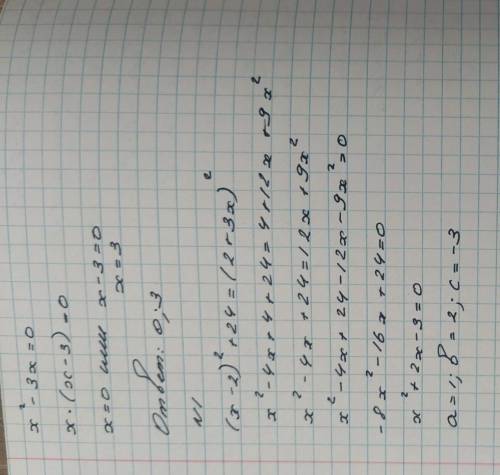 x² - 3x = 0
x · (x - 3) = 0
x = 0 или x - 3 = 0
x = 3
Ответ: 0; 3
N1
(x - 2)² + 24 = (2 + 3x)²
x² - 4x + 4 + 24 = 4 + 12x + 9x²
x² - 4x + 24 = 12x + 9x²
x² - 4x + 24 - 12x - 9x² = 0
-8x² - 16x + 24 = 0
x² + 2x - 3 = 0
a = 1; b = 2; c = -3